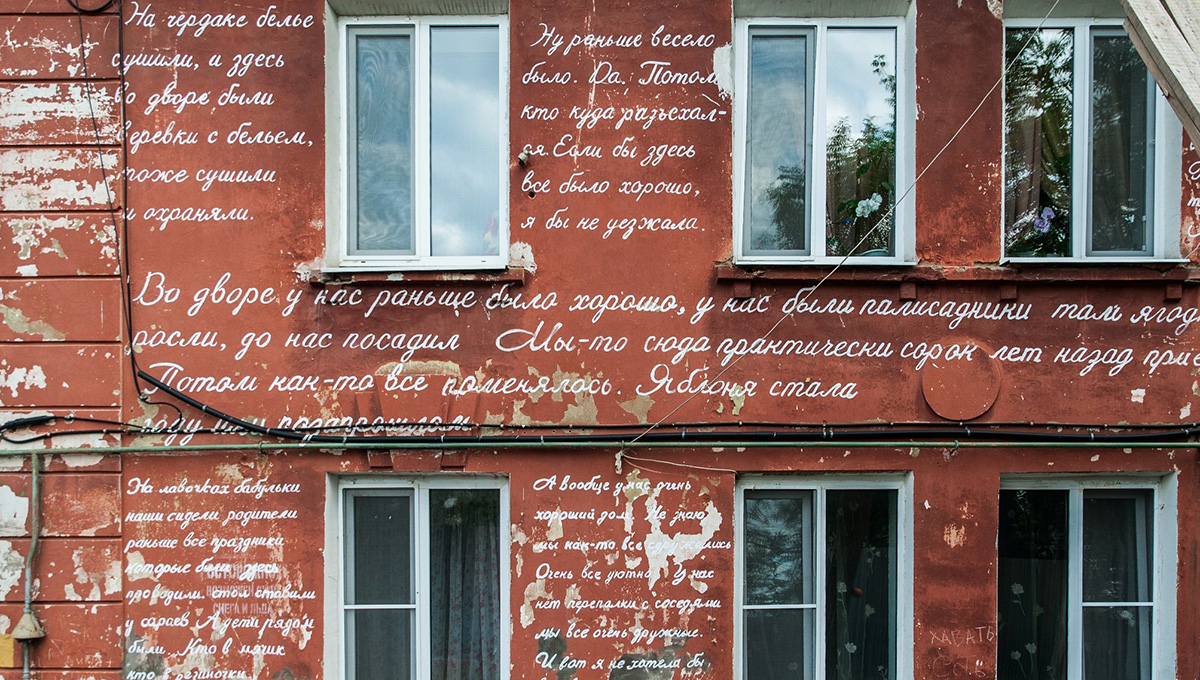 На чердаке белье
сушили, и здесь
во дворе были
веревки с бельем,
тоже сушили
и охраняли.
Ну раньше весело
было. Да. Потом
кто куда разъехал-
ся. Если бы здесь
все было хорошо,
я бы не уезжала.
Во дворе у нас раньше было хорошо, у нас были палисадники там ягод
росли, до нас посадил Мы-то сюда практически сорок лет назад при
Потом как-то все поменялось. Яблоня стала
году позапрошлом
На лавочках бабульки
наши сидели, родители
раньше все праздники
которые были здесь
проводили, стол ставили
у сараев А дети рядом
были. Кто в мячик
кто в резиночки
ОСТОРОЖНО
ВОЗМОЖЕН СХОД
СНЕГА И ЛЬДА
А вообще у нас очень
хороший дом. Не знаю
мы как-то все сдружились
Очень все уютно. У нас
нет перепалки с соседями
мы все очень дружные.
И вот я не хотела бы
ХАВАТЬ